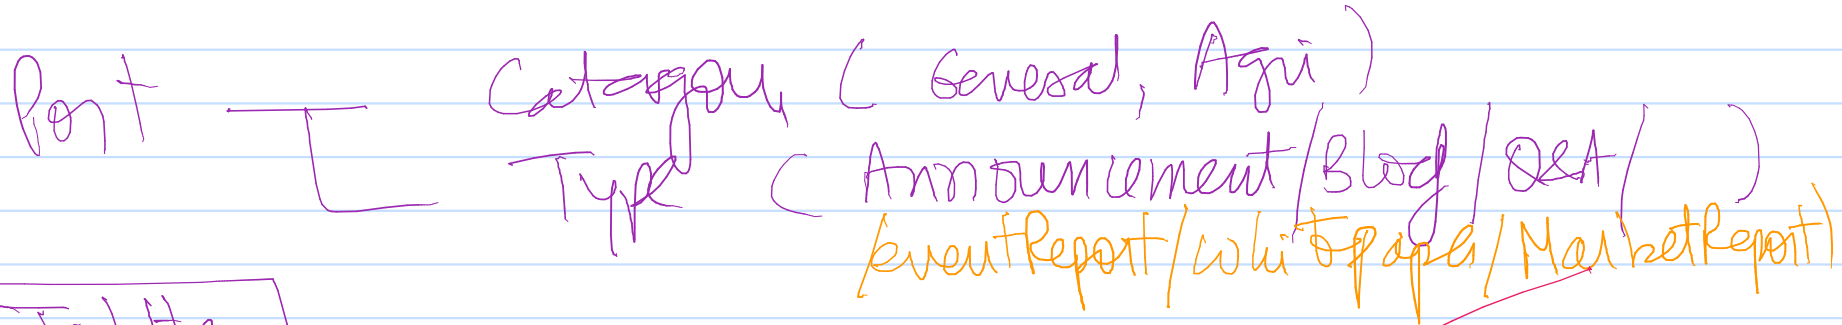 Post Category ( General, Agri )
Type ( Announcement/Blog/Q&A/ )
/eventReport/whitepaper/MarketReport)